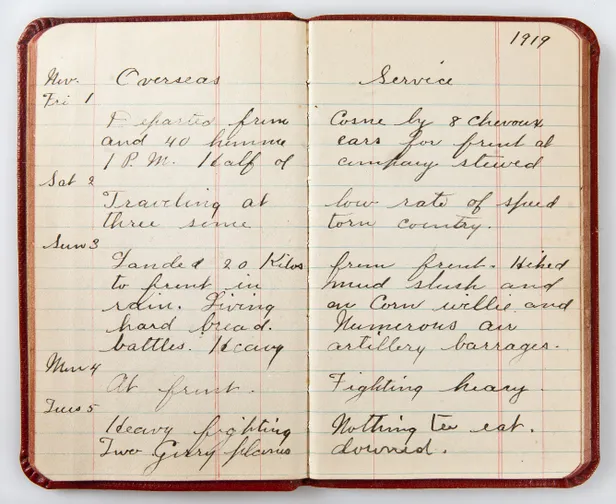 1919
Nov. Overseas Service
Fri 1
Departed from Cosne by 8 Chevoux
and 40 homme cars for front at
1 P.M. Half of company stewed
Sat 2
Traveling at low rate of speed
three some torn country.
Sun 3
Landed 20 Kilos from front. Hiked
to front in mud slush and
rain. Living on Corn willie and
hard bread. Numerous air
battles. Heavy artillery barrages.
Mon 4
At front. Fighting heavy.
Tues 5
Heavy fighting Nothing too eat.
Two Gerry planes downed.